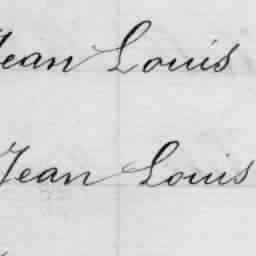 Jean Louis
Jean Louis